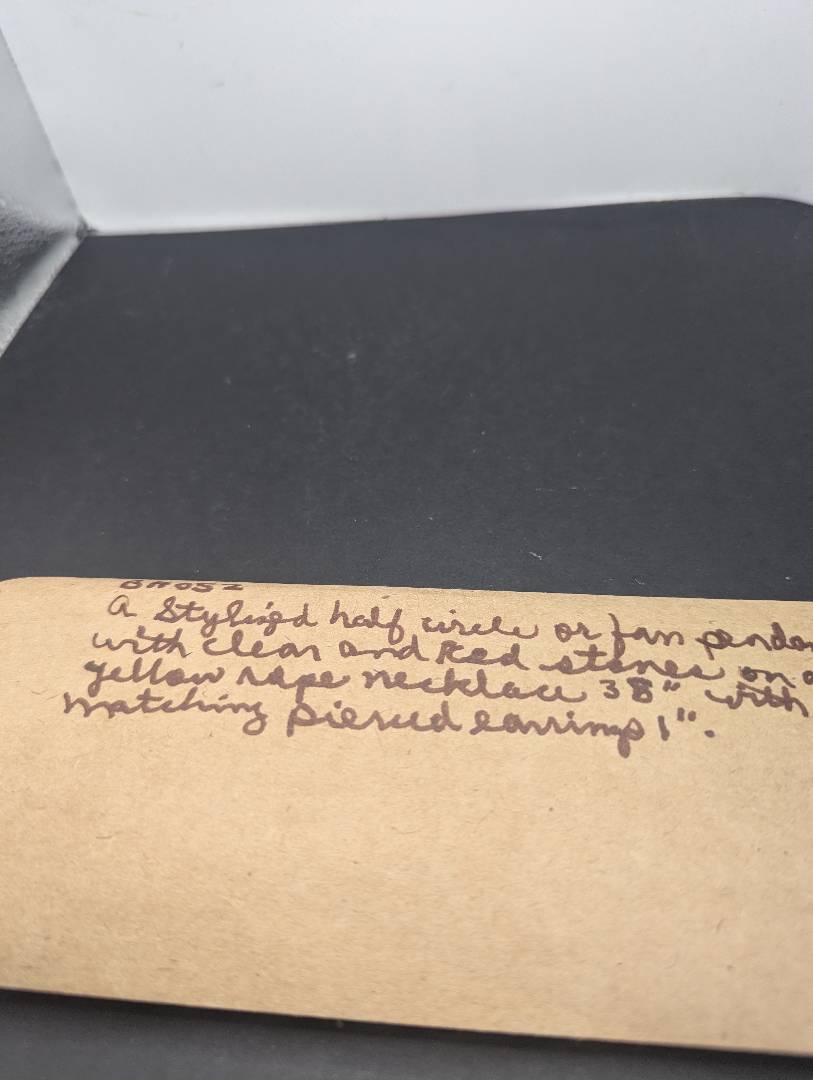 A Stylized half circle or fan
with clear and Red stones on
yellow rope necklace 38" with
matching pierced earrings 1".